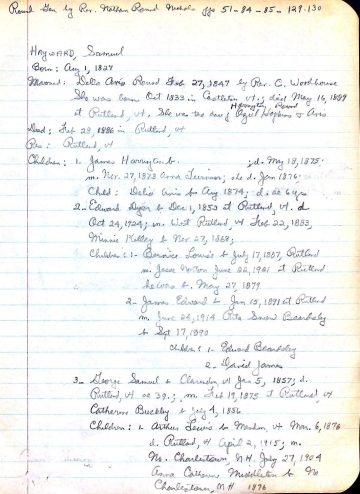 Round Gen by Rev. Nathan Round Nichols pps 51-84-85-129-130
HAYWARD, Samuel
Born: Aug 1, 1827
Married: Delia Avis Round Feb 27, 1847 by Rev. C. Woodhouse
She was born Oct 1833 in Castleton, Vt.; died May 16, 1899
at Rutland, Vt. She was the dau of Ogiel Hopkins & Avis
Died: Feb 28, 1886 in Rutland, Vt
Res: Rutland, Vt
Children: 1. James b. ; d. May 18, 1875.
m. Nov. 27, 1873 Anna ; she d. Jan 1876.
Child: Delia Avis b Aug 1874; d. ae 6 yrs
2- Edward b Dec 1, 1853 at Rutland, Vt. d
Oct 24, 1924; m. West Rutland, Vt Feb 22, 1883,
Minnie Kelley b Nov 27, 1868;
Children: 1- Bernice Louise b July 17, 1887, Rutland
m. Jesse Norton June 26, 1901 at Rutland
he was b. May 27, 1879
2- James Edward b Jan 15, 1891 at Rutland
m. June 24, 1914 Rita Snow Beardsley
b Sept 17, 1890
Children: 1- Edward Beardsley
2. David James
3- George Samuel b Clarendon, Vt Jan 5, 1857; d.
Rutland, Vt ae 39.; m. Feb 19, 1875 at Rutland, Vt
Catherine Buckley b July 4, 1856
Children: 1- Arthur Lewis b Mendon, Vt Mar. 6, 1876
d. Rutland, Vt April 2, 1915; m.
No. Charlestown, N.H. July 27, 1904
Anna Middleton b No
Charlestown, N.H 1876